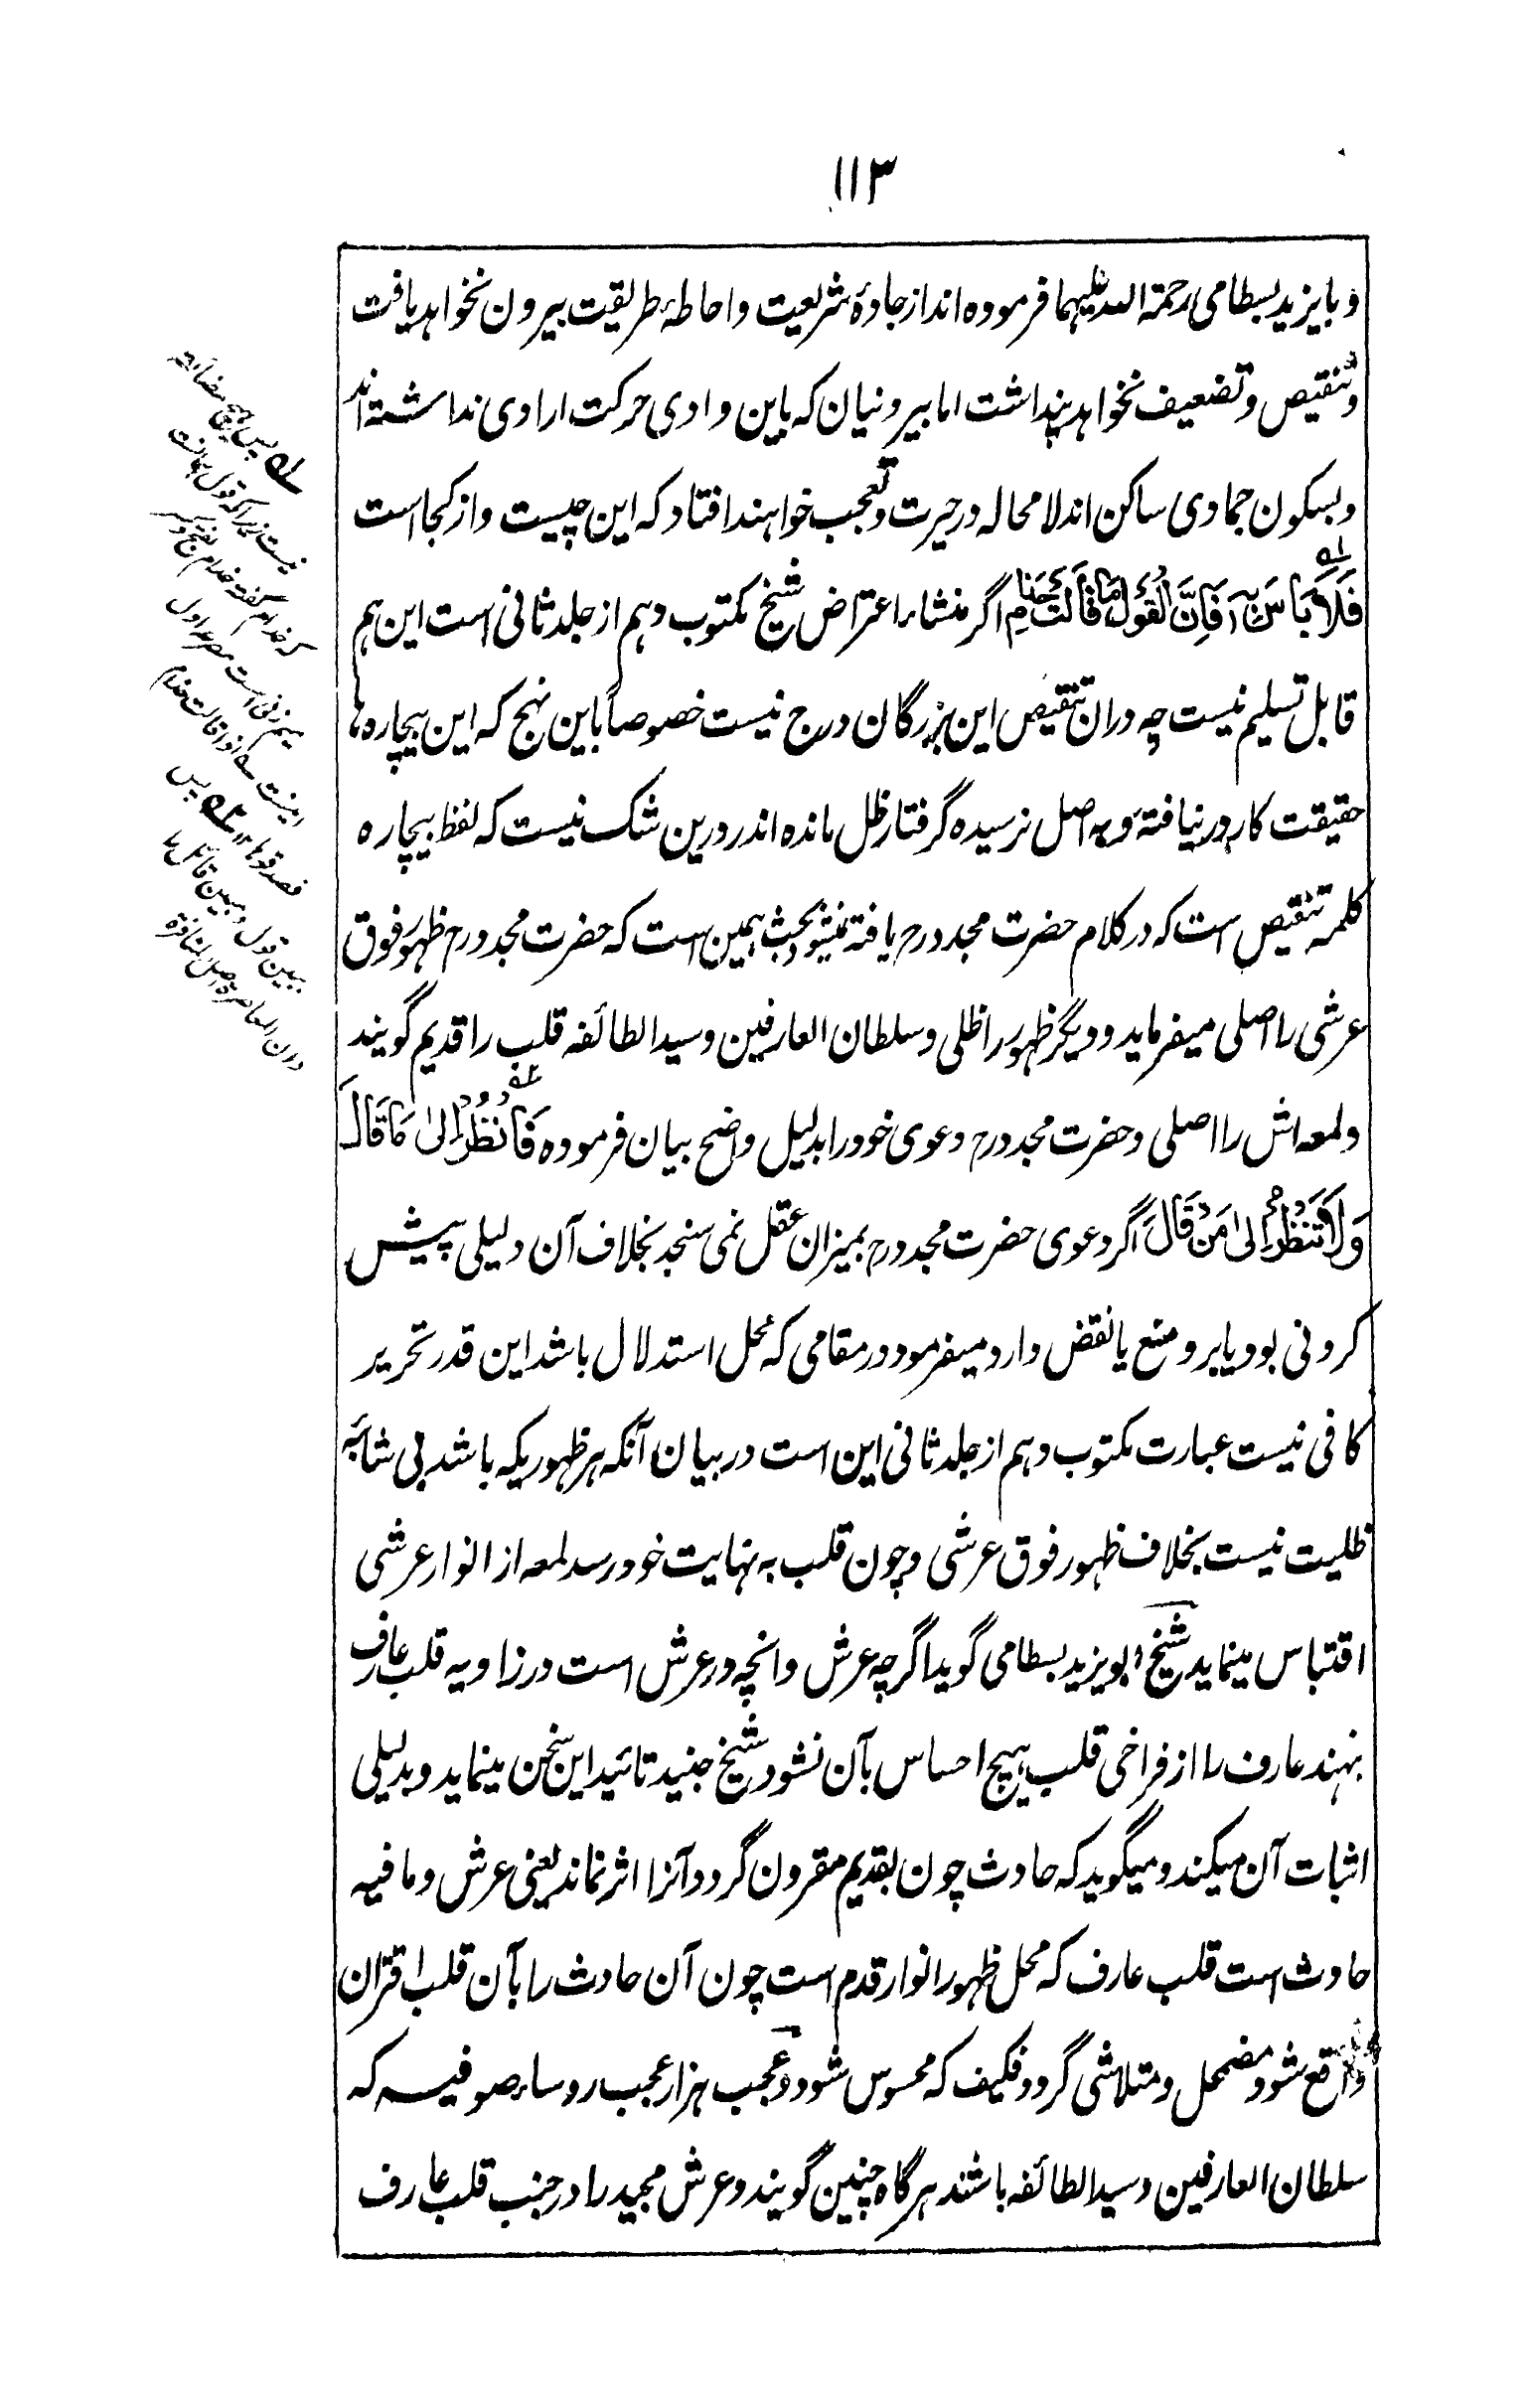 ۱۱۳
و بایزید بسطامی رحمة الله علیهما فرموده اند از جادهٔ شریعت و احاطهٔ طریقیت بیرون نخواهد یافت
و تنقیص و تضعیف نخواهد پنداشت اما بیرونیان که باین وادی حرکت ارادی نداشته اند
و بسکون جمادی ساکن اند لا محاله در حیرت و تعجب خواهند افتاد که این چیست و از کجا است
فَلَا بَاسَ اٰه فَاِنَّ الْقَوْلَ مَا قَالَتْ حَذَامِ اگر منشاء اعتراض شیخ مکتوب دهم از جلد ثانی است این هم
قابل تسلیم نیست چه دران تنقیص این بزرگان درج نیست خصوصاً باین نهج که این بیچاره ها
حقیقت کار در نیافته و به اصل نرسیده گرفتار ظل مانده اند درین شک نیست که لفظ بیچاره
کلمه تنقیص است که در کلام حضرت مجدد رح یافته نمیشود بحث همین است که حضرت مجدد رح ظهور فوق
عرشی را اصلی میفرماید و دیگر ظهور را ظلی و سلطان العارفین و سید الطائفه قلب را قدیم گویند
و لمعه اش را اصلی و حضرت مجدد رح دعوی خود را بدلیل واضح بیان فرموده فَانْظُرْ اِلٰی مَا قَالَ
وَلَا تَنْظُرْ اِلٰی مَنْ قَالَ اگر دعوی حضرت مجدد رح بمیزان عقل نمی سنجد بخلاف آن دلیلی پیش
کردنی بود یا برو منع یا نقض وارد میفرمود در مقامی که محل استدلال باشد این قدر تحریر
کافی نیست عبارت مکتوب دهم از جلد ثانی این است در بیان آنکه هر ظهوریکه باشد بی شائبه
ظلیت نیست بخلاف ظهور فوق عرشی و چون قلب به نهایت خود رسد لمعه از انوار عرشی
اقتباس مینماید شیخ ابویزید بسطامی گوید اگرچه عرش و انچه در عرش است در زاویه قلب عارف
نهند عارف را از فراخی قلب هیچ احساس بآن نشود شیخ جنید تائید این سخن مینماید و بدلیلی
اثبات آن میکند و میگوید که حادث چون بقدیم مقرون گردد آنرا اثر نماند یعنی عرش و ما فیه
حادث است قلب عارف که محل ظهور انوار قدم است چون آن حادث را بآن قلب اقتران
واقع شود مضمحل و متلاشی گردد فکیف که محسوس شود و عجب هزار عجب روساء صوفیه که
سلطان العارفین و سید الطائفه باشند هرگاه چنین گویند و عرش مجید را در جنب قلب عارف
ـلـه پس هیچ مضائقه
نیست زیرا که قول همانست
که حذام گفته حذام
مصرع اول
اینست ـه اذا قالت حذام
فصدقوها ۱۲ ـلـه پس
ببین قول و مبین قائل را